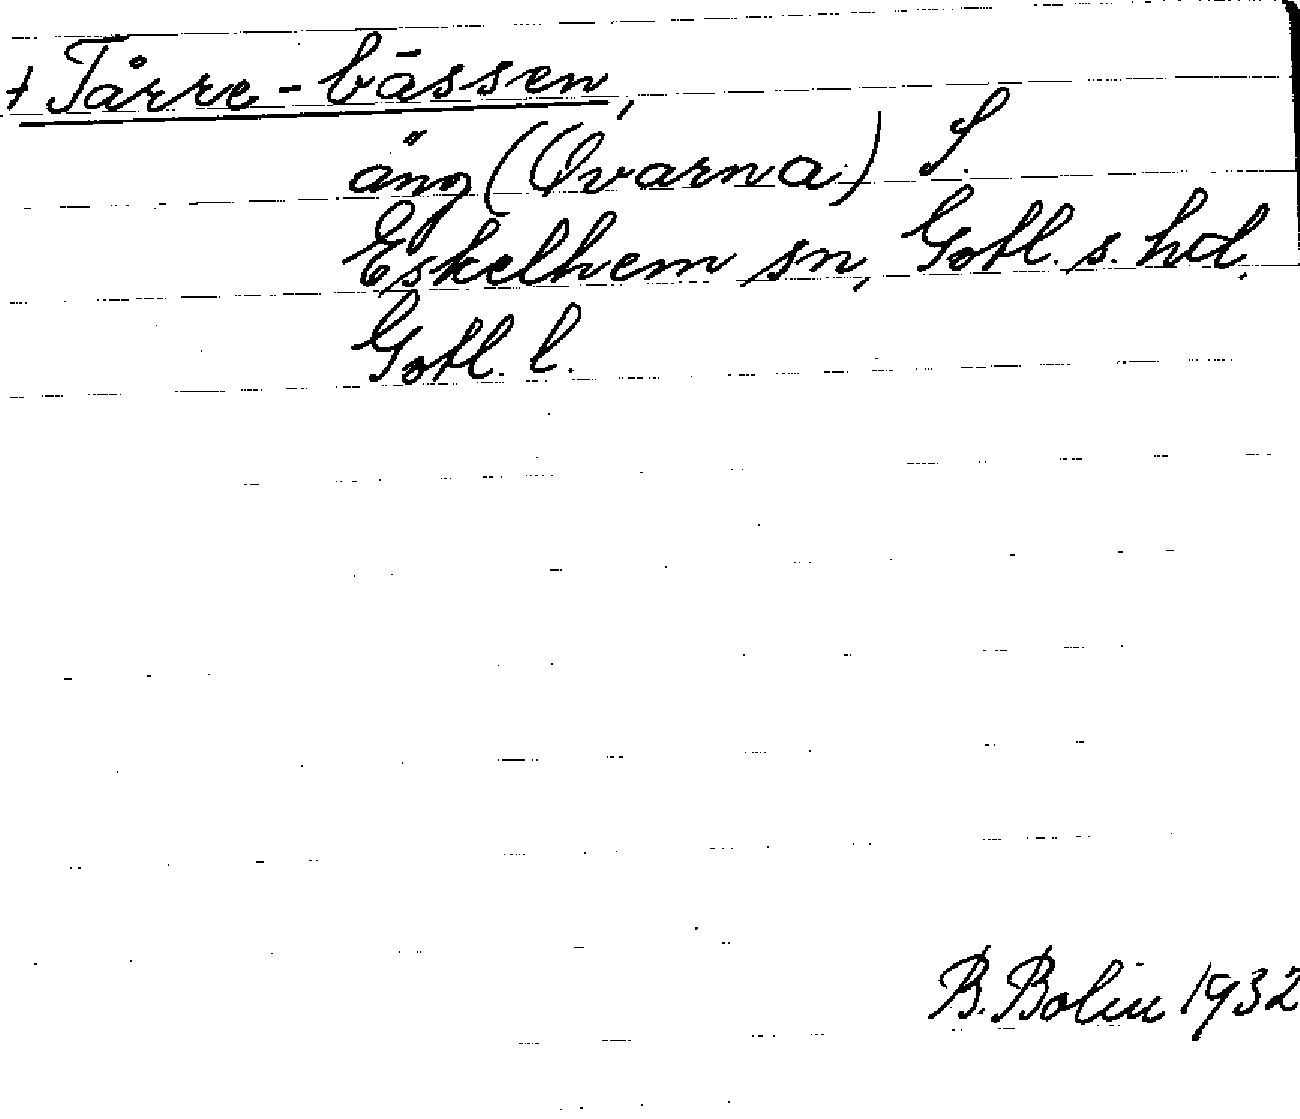 + Tårre-bāssen,
äng (Øvarna) S.
Eskelhem sn, Gotl. s. hd.
Gotl. l.
B. Bolin 1932